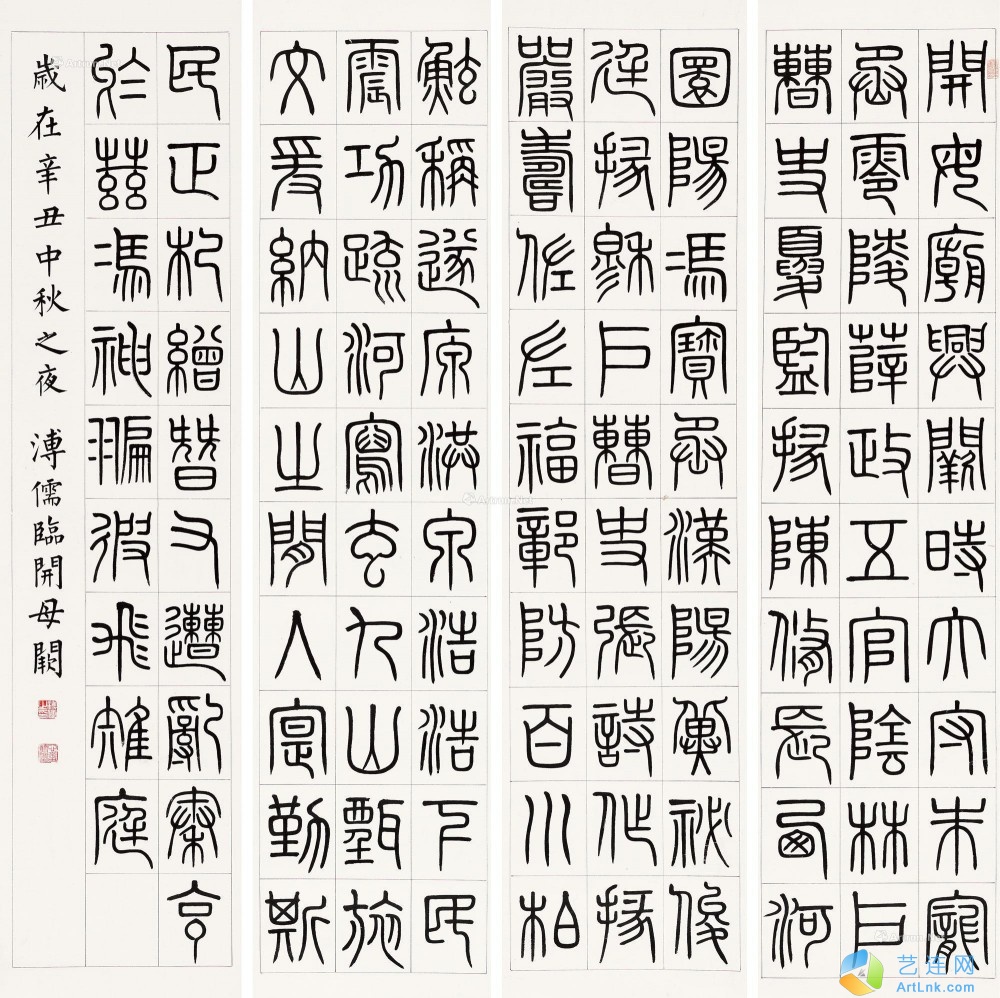 開母廟興闕時大守朱寵
丞零陵薛政五官陰林戶
曹史夏監掾陳脩長西河
圜陽馮寶丞漢陽冀祕俊
廷掾穆戶曹史張詩作掾
嚴壽佐左福鄣防百川柏
鮌稱遂原洪泉浩浩下民
震功疏河寫玄九山甄旅
文爰納山之閒人寔勤斯
民正杞繒替又遭亂秦亨
於茲馮神翩彼飛雉庭
歲在辛丑中秋之夜 溥儒臨開母闕
艺连网
ArtLnk.com